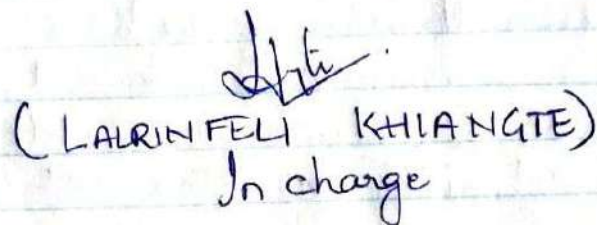 (LALRINFELI KHIANGTE)
In charge